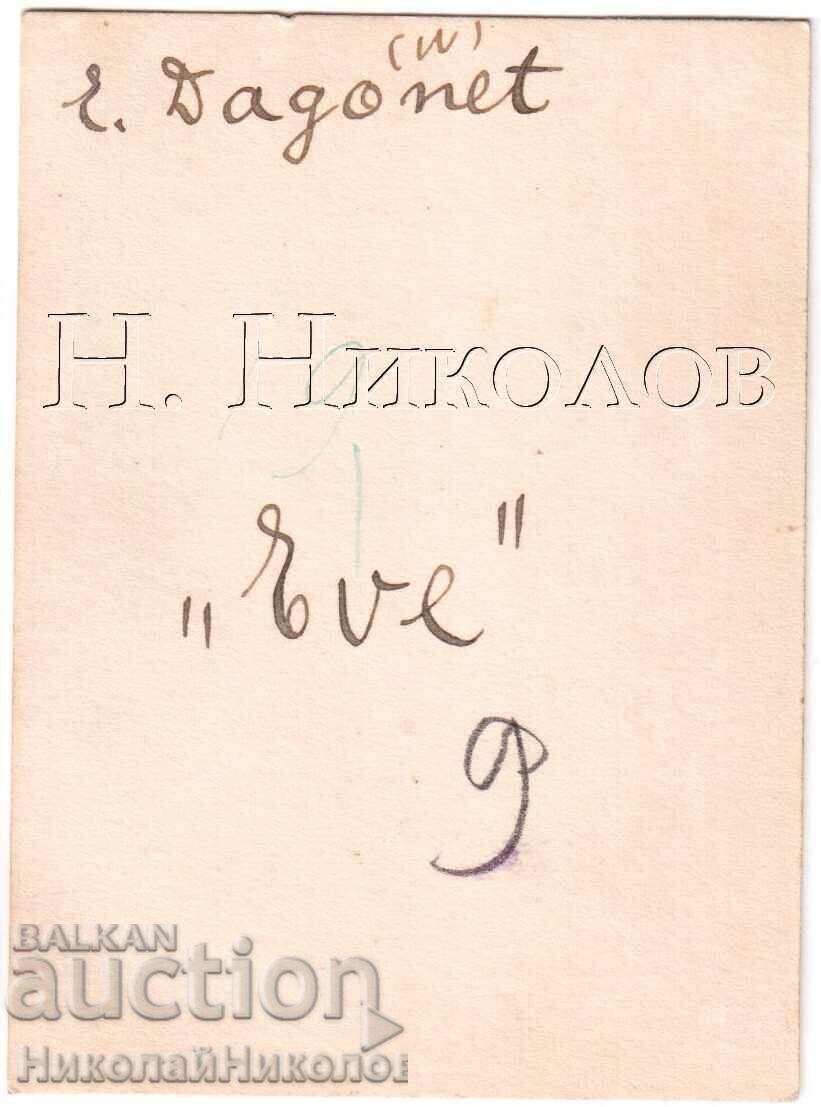 (N)
E. Dagonet
Н. Николов
9
1
„Eve"
9
BALKAN
auction
НиколайНиколов